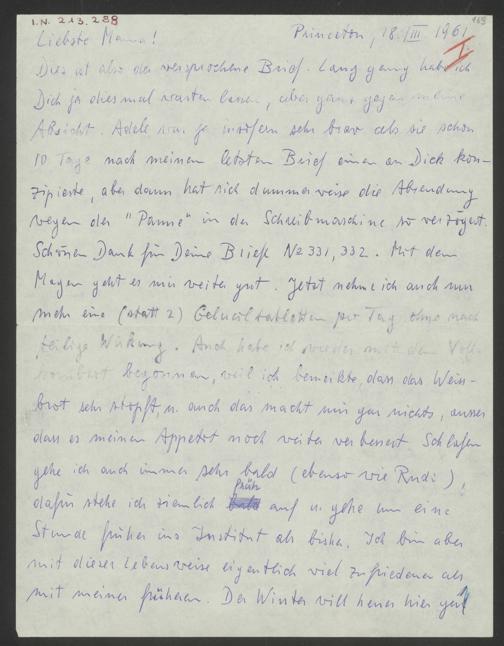 I.N. 213.288
168
I
Princeton, 18./III 1961.
Liebste Mama!
Dies ist also der versprochene Brief. Lang genug hab' ich
Dich ja diesmal warten lassen, aber ganz gegen meine
Absicht. Adele war ja insofern sehr brav als sie schon
10 Tage nach meinem letzten Brief einen an Dich kon-
zipierte, aber dann hat sich dummerweise die Absendung
wegen der "Panne" in der Schreibmaschine so verzögert.
Schönen Dank für Deine Briefe No 331, 332. Mit dem
Magen geht es mir weiter gut. Jetzt nehme ich auch nur
mehr eine (statt 2) Gelusiltabletten per Tag ohne nach-
teilige Wirkung. Auch habe ich wieder mit dem Voll-
kornbrot begonnen, weil ich bemerkte, dass das Weiss-
brot sehr stopft u. auch das macht mir gar nichts, ausser
dass es meinen Appetit noch weiter verbessert. Schlafen
gehe ich auch immer sehr bald (ebenso wie Rudi),
früh
dafür stehe ich ziemlich bald auf u. gehe um eine
Stunde früher ins Institut als bisher. Ich bin aber
mit dieser Lebensweise eigentlich viel zufriedener als
mit meiner früheren. Der Winter will heuer hier gar